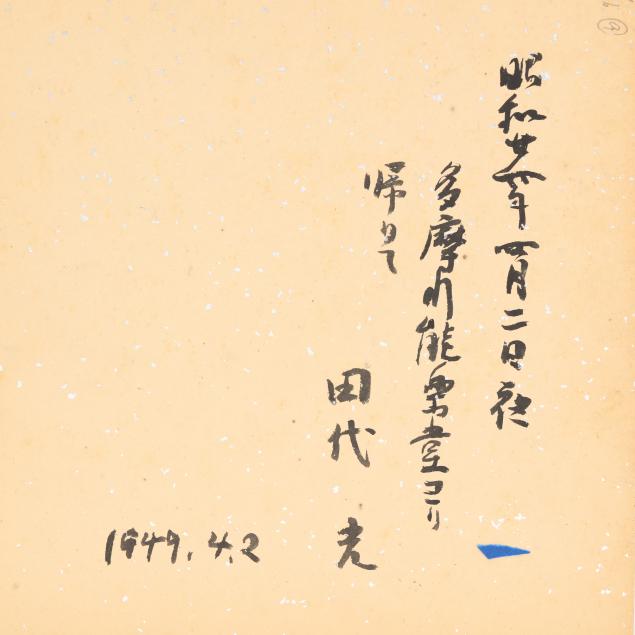 昭和廿四年四月二日夜
多摩川能楽堂ヨリ
帰りて
田代 光
1949.4.2